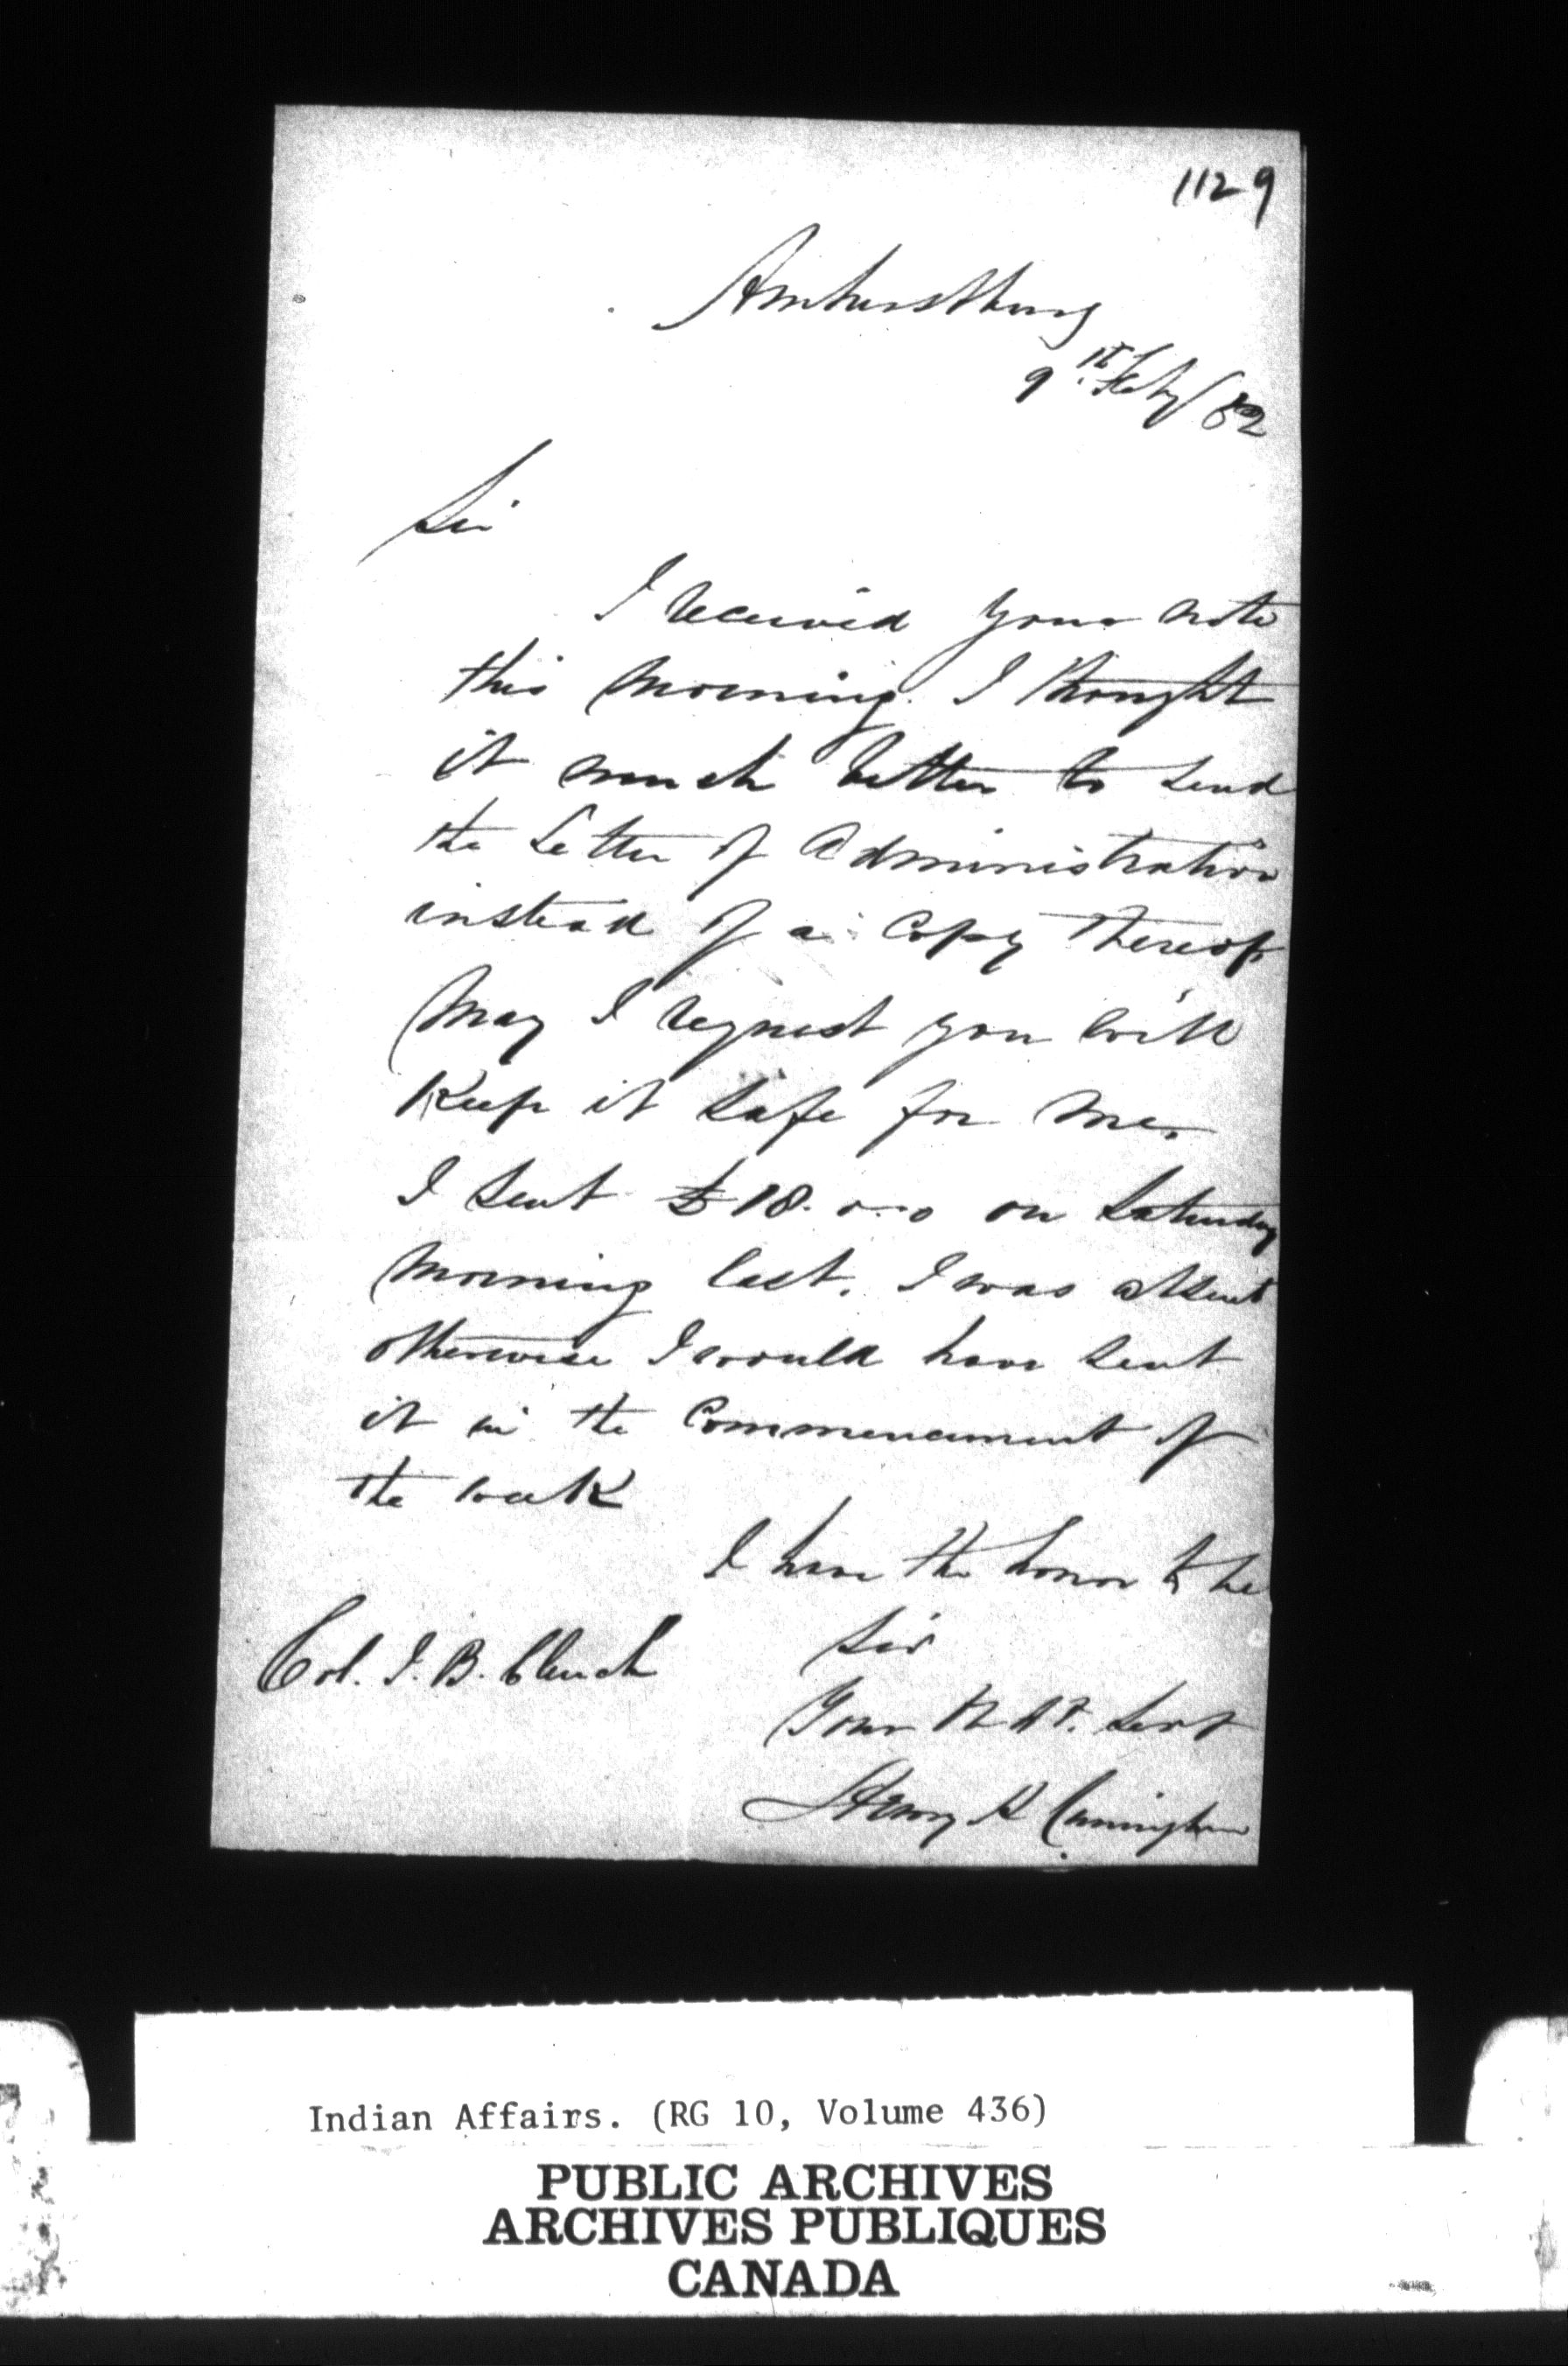 1129
Amherstburg
9th Feby/52
Sir
I received your note
this morning. I thought
it much better to send
the Letter of Administration
instead of a Copy thereof
May I request you will
Keep it safe for me.
I sent £18.0.0 on Saturday
morning last. I was absent
otherwise I would have sent
it in the Commencement of
the week
I have the honor to be
Sir
Col. J. B. Clench
Your Servt
Henry Cunningham
Indian Affairs. (RG 10, Volume 436)
PUBLIC ARCHIVES
ARCHIVES PUBLIQUES
CANADA